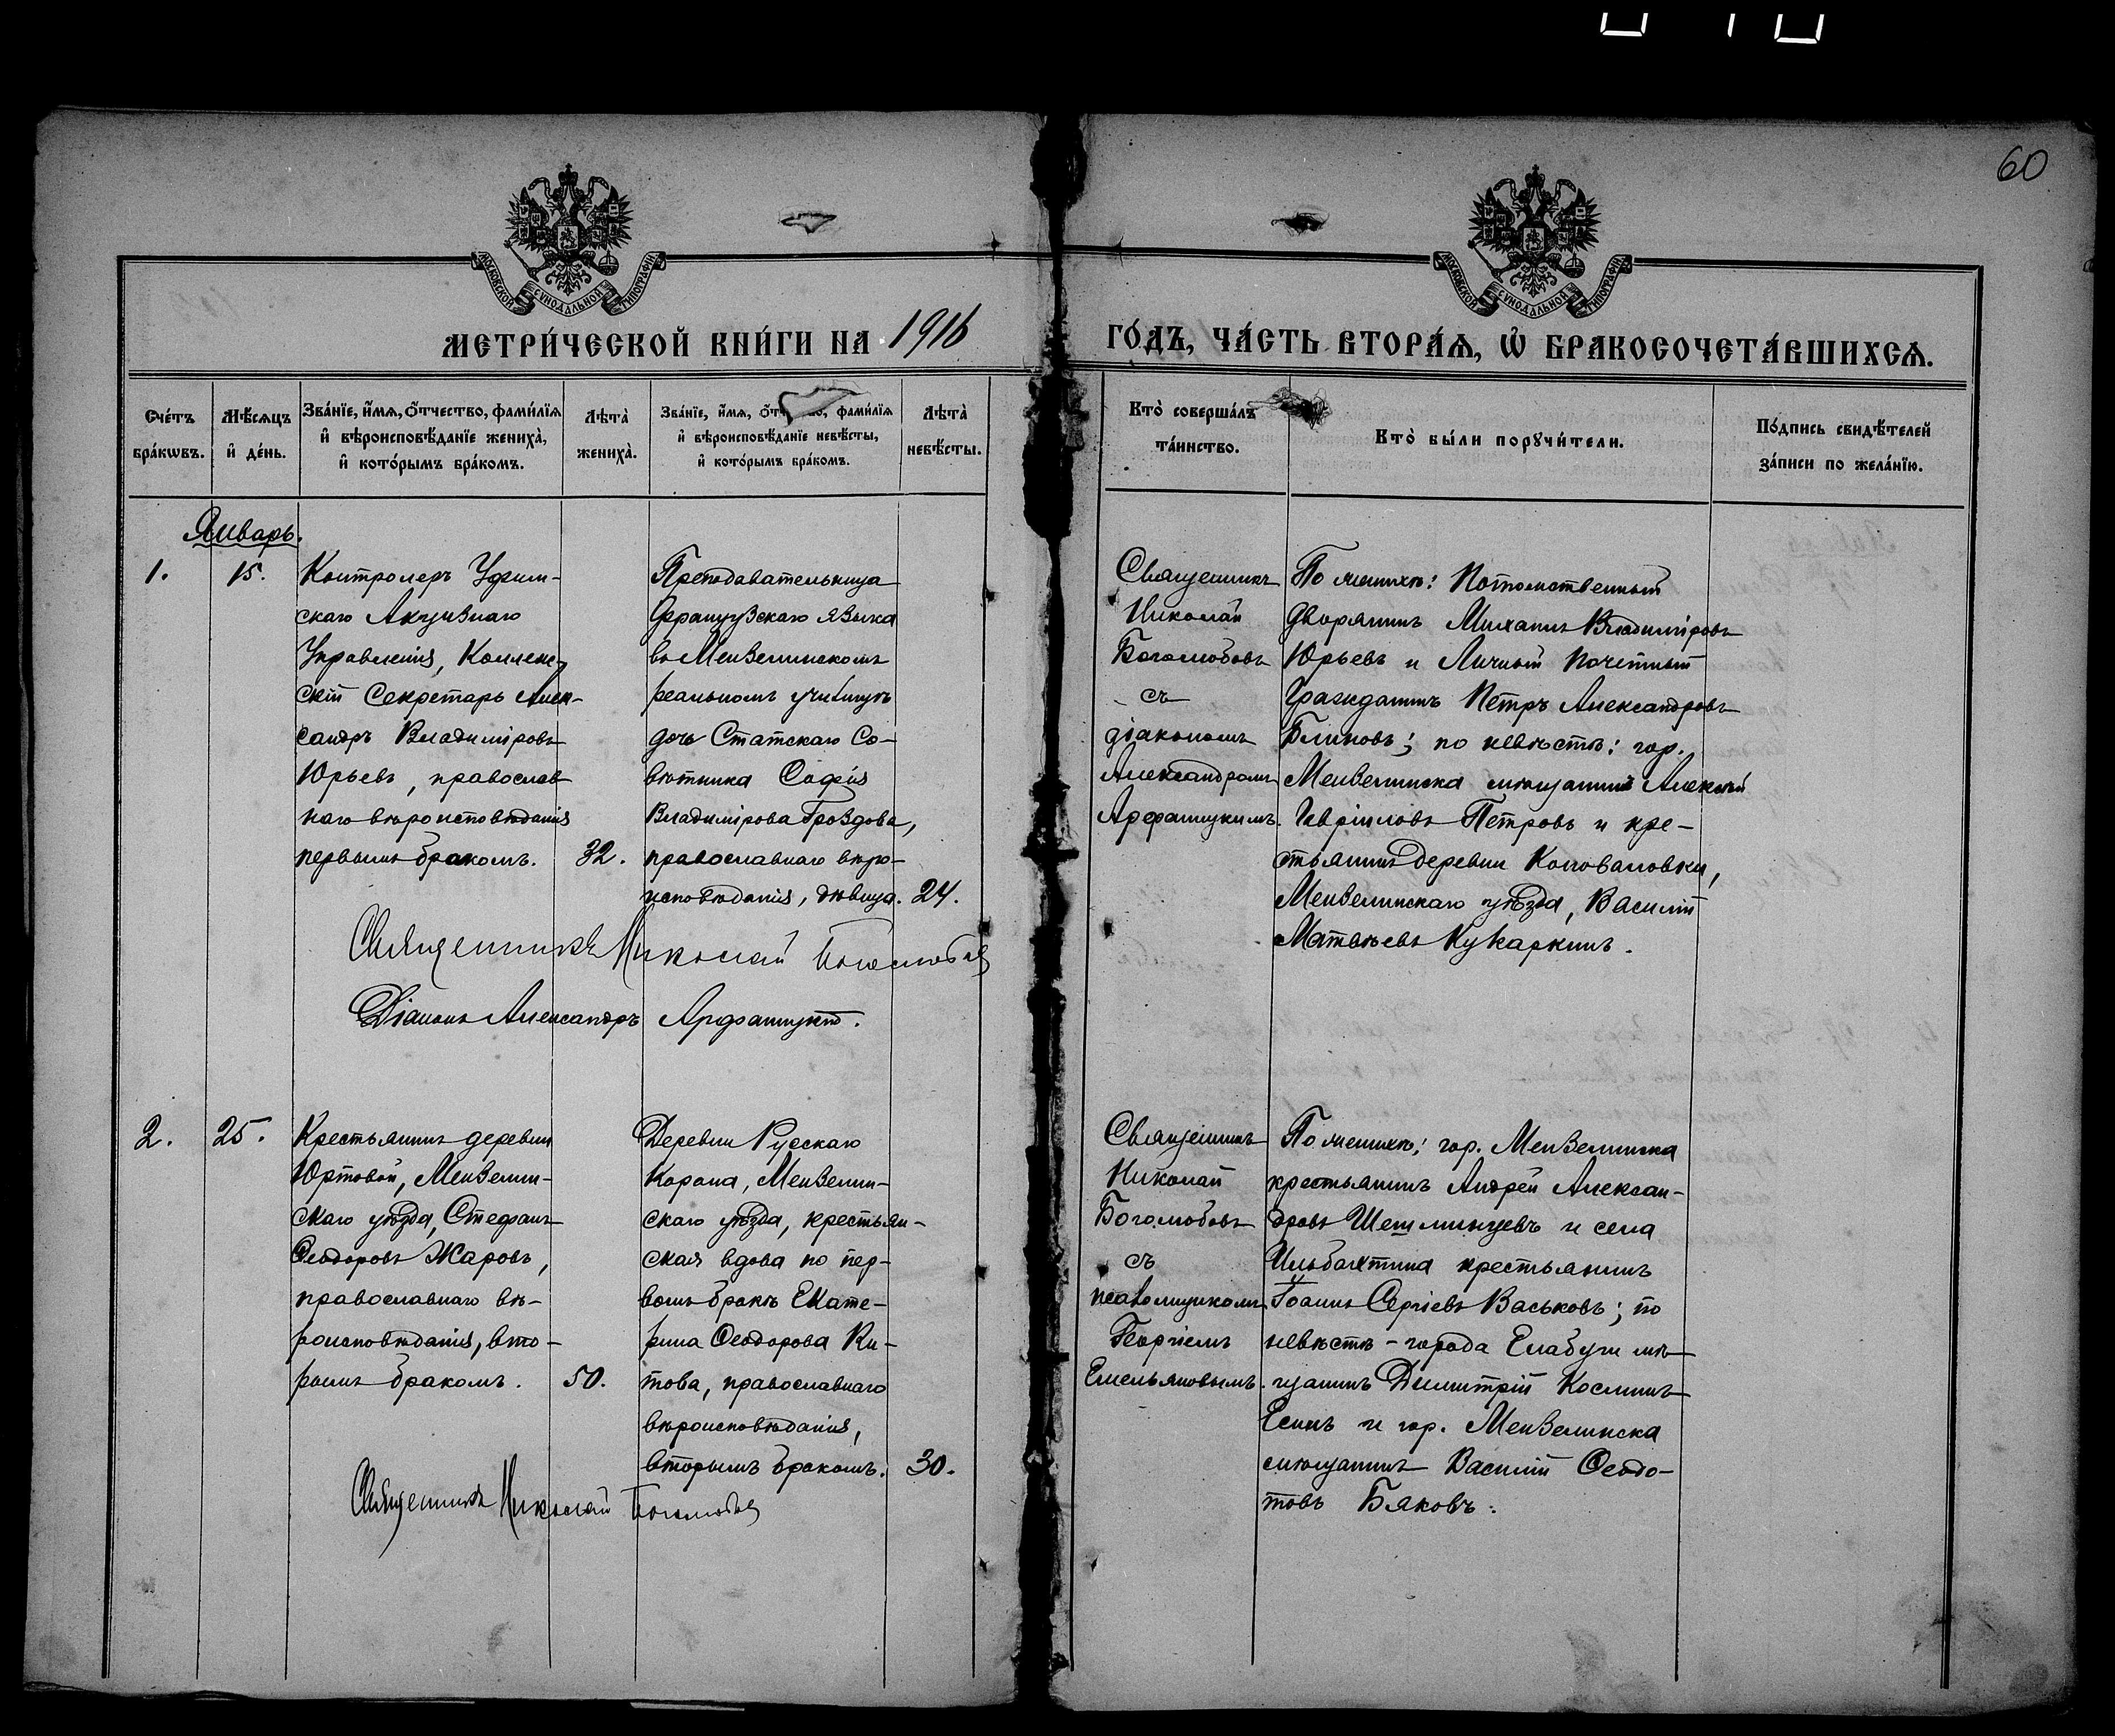 60
МОСКОВСКОЙ СѴНОДАЛЬНОЙ ТИПОГРАФІИ
МОСКОВСКОЙ СѴНОДАЛЬНОЙ ТИПОГРАФІИ
МЕТРИ́ЧЕСКОЙ КНИ́ГИ НА 1916
ГО́ДЪ, ЧА́СТЬ ВТОРА́Ѧ, Ѡ҆ БРАКОСОЧЕТА́ВШИХСѦ.
Сче́тъ
бра́кѡвъ.
Мѣ́сѧцъ
и҆ де́нь.
Зва́нїе, и҆́мѧ, о҆́тчество, фами́лїѧ
и҆ вѣроисповѣ́данїе жениха̀,
и҆ кото́рымъ бра́комъ.
Лѣта̀
жениха̀.
Зва́нїе, и҆́мѧ, о҆́тчество, фами́лїѧ
и҆ вѣроисповѣ́данїе невѣ́сты,
и҆ кото́рымъ бра́комъ.
Лѣта̀
невѣ́сты.
Кто̀ соверша́лъ
та́инство.
Кто̀ бы́ли порꙋчи́тели.
По́дпись свидѣ́телей
за́писи по жела́нїю.
Январь.
1.
15.
Контролеръ Уфим-
скаго Акцизнаго
Управленія, Коллеж-
скій Секретарь Алек-
сандръ Владиміровъ
Юрьевъ, православ
наго вѣроисповѣданія
первымъ бракомъ.
32.
Преподавательница
Французскаго языка
въ Мензелинскомъ
реальномъ училищѣ
дочь Статскаго Со-
вѣтника Софія
Владимірова Гроздова,
православнаго вѣро-
исповѣданія, дѣвица.
24.
Священникъ
Николай
Боголюбовъ
съ
діакономъ
Александромъ
Арфаницкимъ.
По женихѣ: Потомственный
дворянинъ Михаилъ Владиміровъ
Юрьевъ и Личный почетный
Гражданинъ Петръ Александровъ
Блиновъ; по невѣстѣ: гор.
Мензелинска мѣщанинъ Алексѣй
Гавріиловъ Петровъ и кре-
стьянинъ деревни Коноваловки,
Мензелинскаго уѣзда, Василій
Матвѣевъ Кукаркинъ.
Священникъ Николай Боголюбовъ
Діаконъ Александръ Арфаницкій.
2.
25.
Крестьянинъ деревни
Юртовой, Мензелин-
скаго уѣзда, Стефанъ
Ѳеодоровъ Жаровъ,
православнаго вѣ-
роисповѣданія, вто-
рымъ бракомъ.
50.
Деревни Русскаго
Карана, Мензелин-
скаго уѣзда, крестьян-
ская вдова по пер-
вомъ бракѣ Екате-
рина Ѳеодорова Ки-
това, православнаго
вѣроисповѣданія,
вторымъ бракомъ.
30.
Священникъ
Николай
Боголюбовъ
съ
псаломщикомъ
Георгіемъ
Емельяновымъ.
По женихѣ: гор. Мензелинска
крестьянинъ Андрей Алексан-
дровъ Шешминцевъ и села
Ильбахтина крестьянинъ
Іоаннъ Сергіевъ Васьковъ; по
невѣстѣ - города Елабуги мѣ-
щанинъ Димитрій Косминъ
Есинъ и гор. Мензелинска
мѣщанинъ Василій Ѳеодо-
товъ Бяковъ.
Священникъ Николай Боголюбовъ